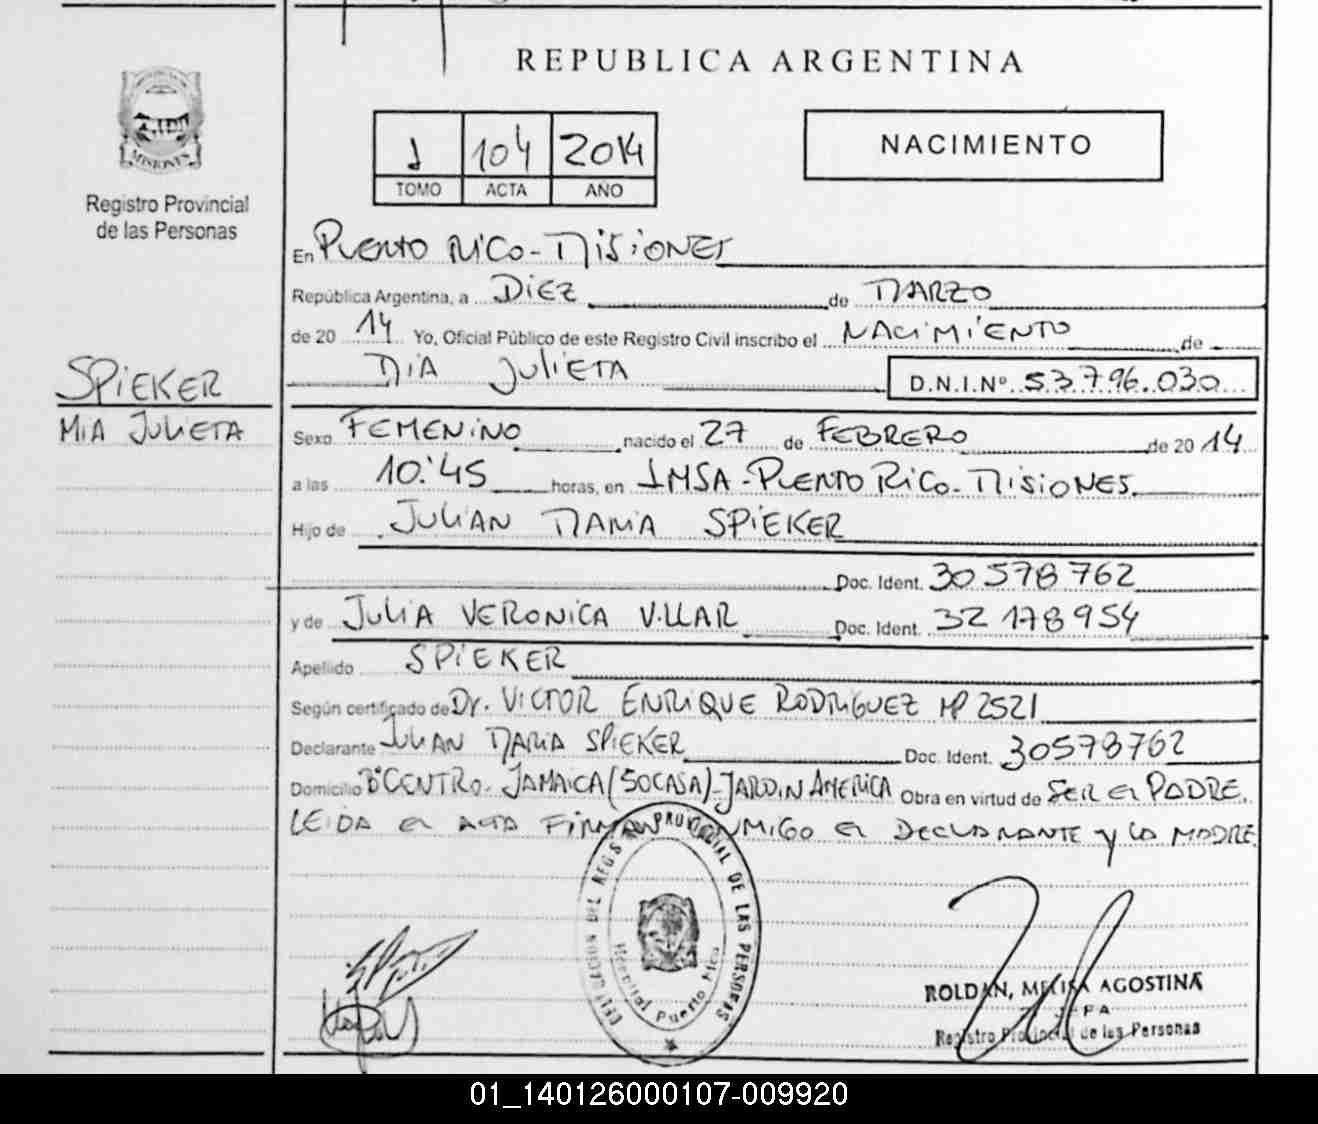 REPUBLICA ARGENTINA
MISIONES
Registro Provincial
de las Personas
1 104 2014
TOMO ACTA AÑO
NACIMIENTO
En PUERTO RICO - MISIONES
República Argentina, a DIEZ de MARZO
de 2014 Yo, Oficial Público de este Registro Civil inscribo el NACIMIENTO de
MIA JULIETA D.N.I.Nº 53.796.030
SPIEKER
MIA JULIETA
Sexo FEMENINO nacido el 27 de FEBRERO de 2014
a las 10:45 horas, en IMSA - PUERTO RICO - MISIONES
Hijo de JULIAN MARIA SPIEKER
Doc. Ident. 30578762
y de JULIA VERONICA VILLAR Doc. Ident. 32178954
Apellido SPIEKER
Según certificado de Dr. VICTOR ENRIQUE RODRIGUEZ MP 2521
Declarante JULIAN MARIA SPIEKER Doc. Ident. 30578762
Domicilio Bº CENTRO - JAMAICA (SOCASA) - JARDIN AMERICA Obra en virtud de SER EL PADRE.
LEIDA EL ACTA FIRMAN CONMIGO EL DECLARANTE y LA MADRE
PROVINCIAL DE LAS PERSONAS
Hospital Puerto Rico
ROLDAN, MELISA AGOSTINA
Registro Provincial de las Personas
01_140126000107-009920